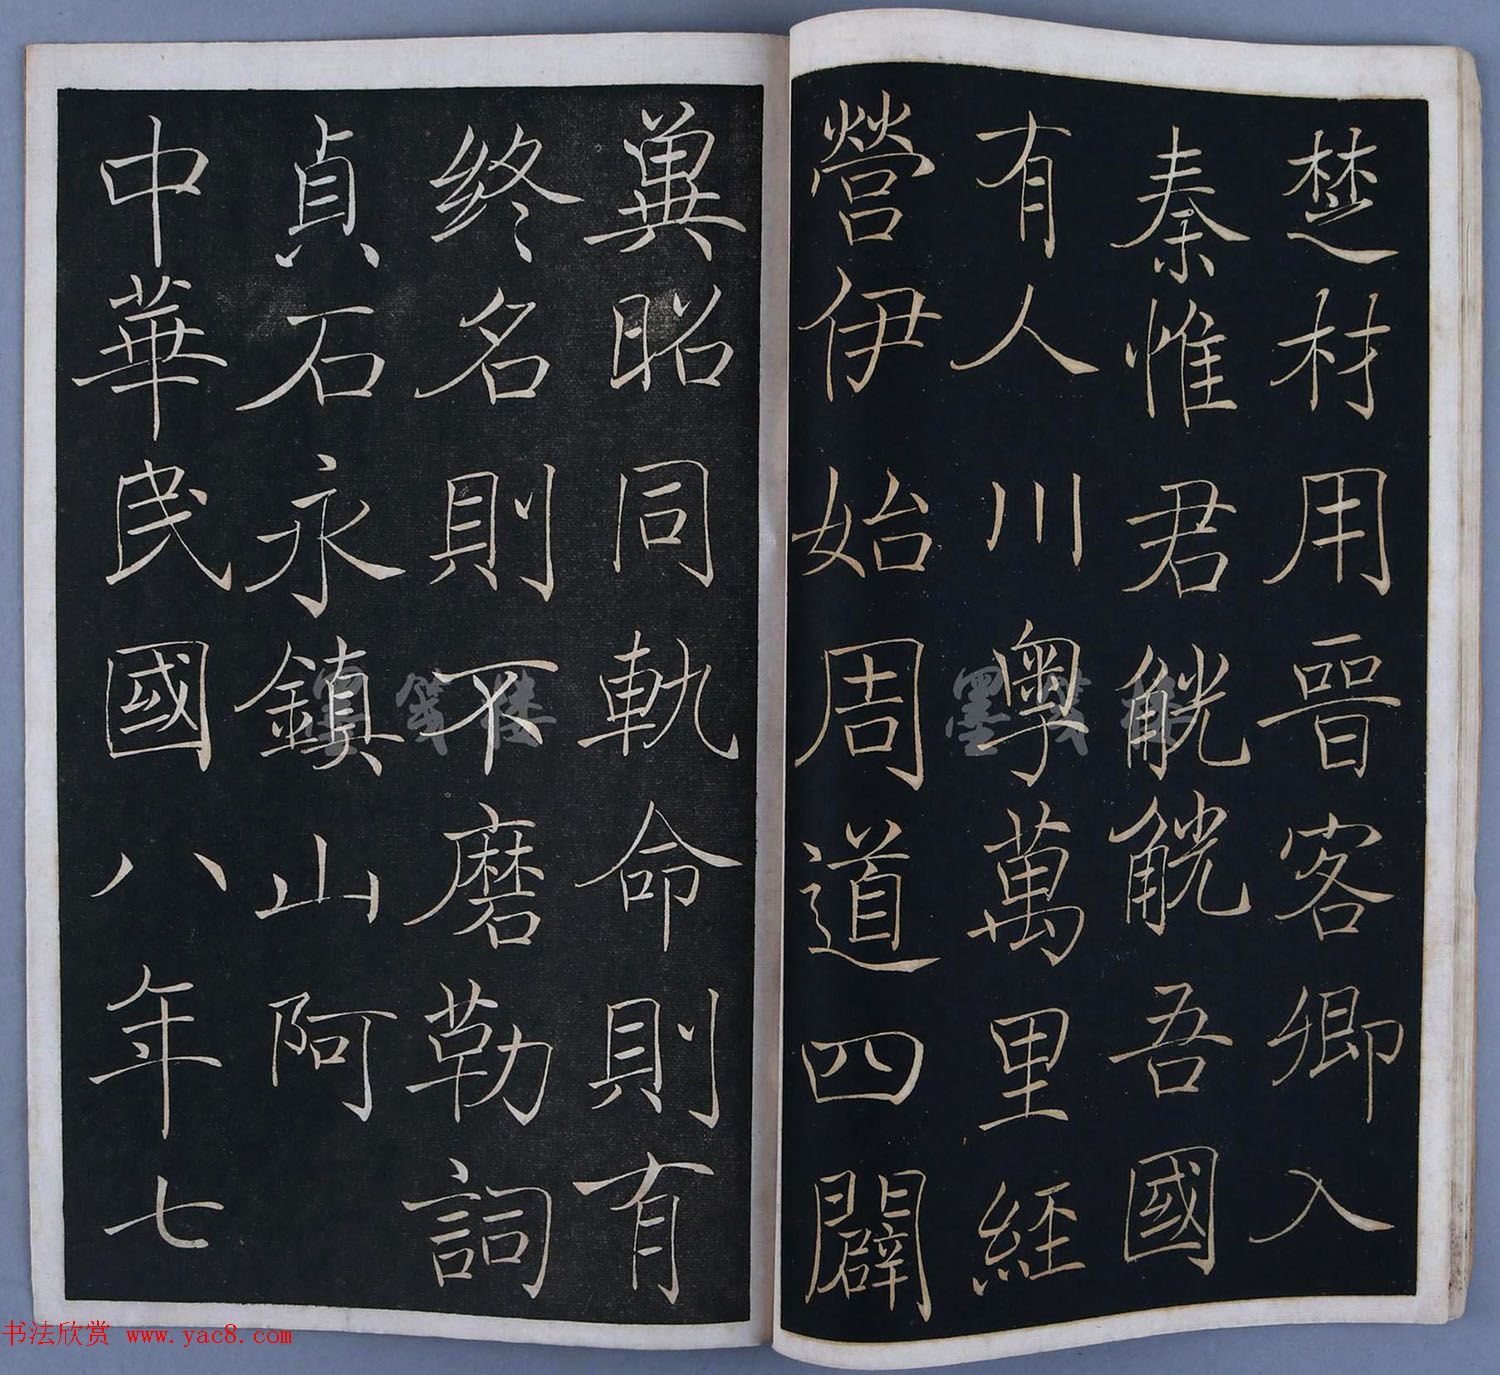 楚材用晉客卿入
秦惟君觥觥吾國
有人川粵萬里經
營伊始周道四闢
冀昭同軌命則有
終名則不磨勒詞
貞石永鎮山阿
中華民國八年七
墨笺楼
墨笺楼
书法欣赏 www.yac8.com